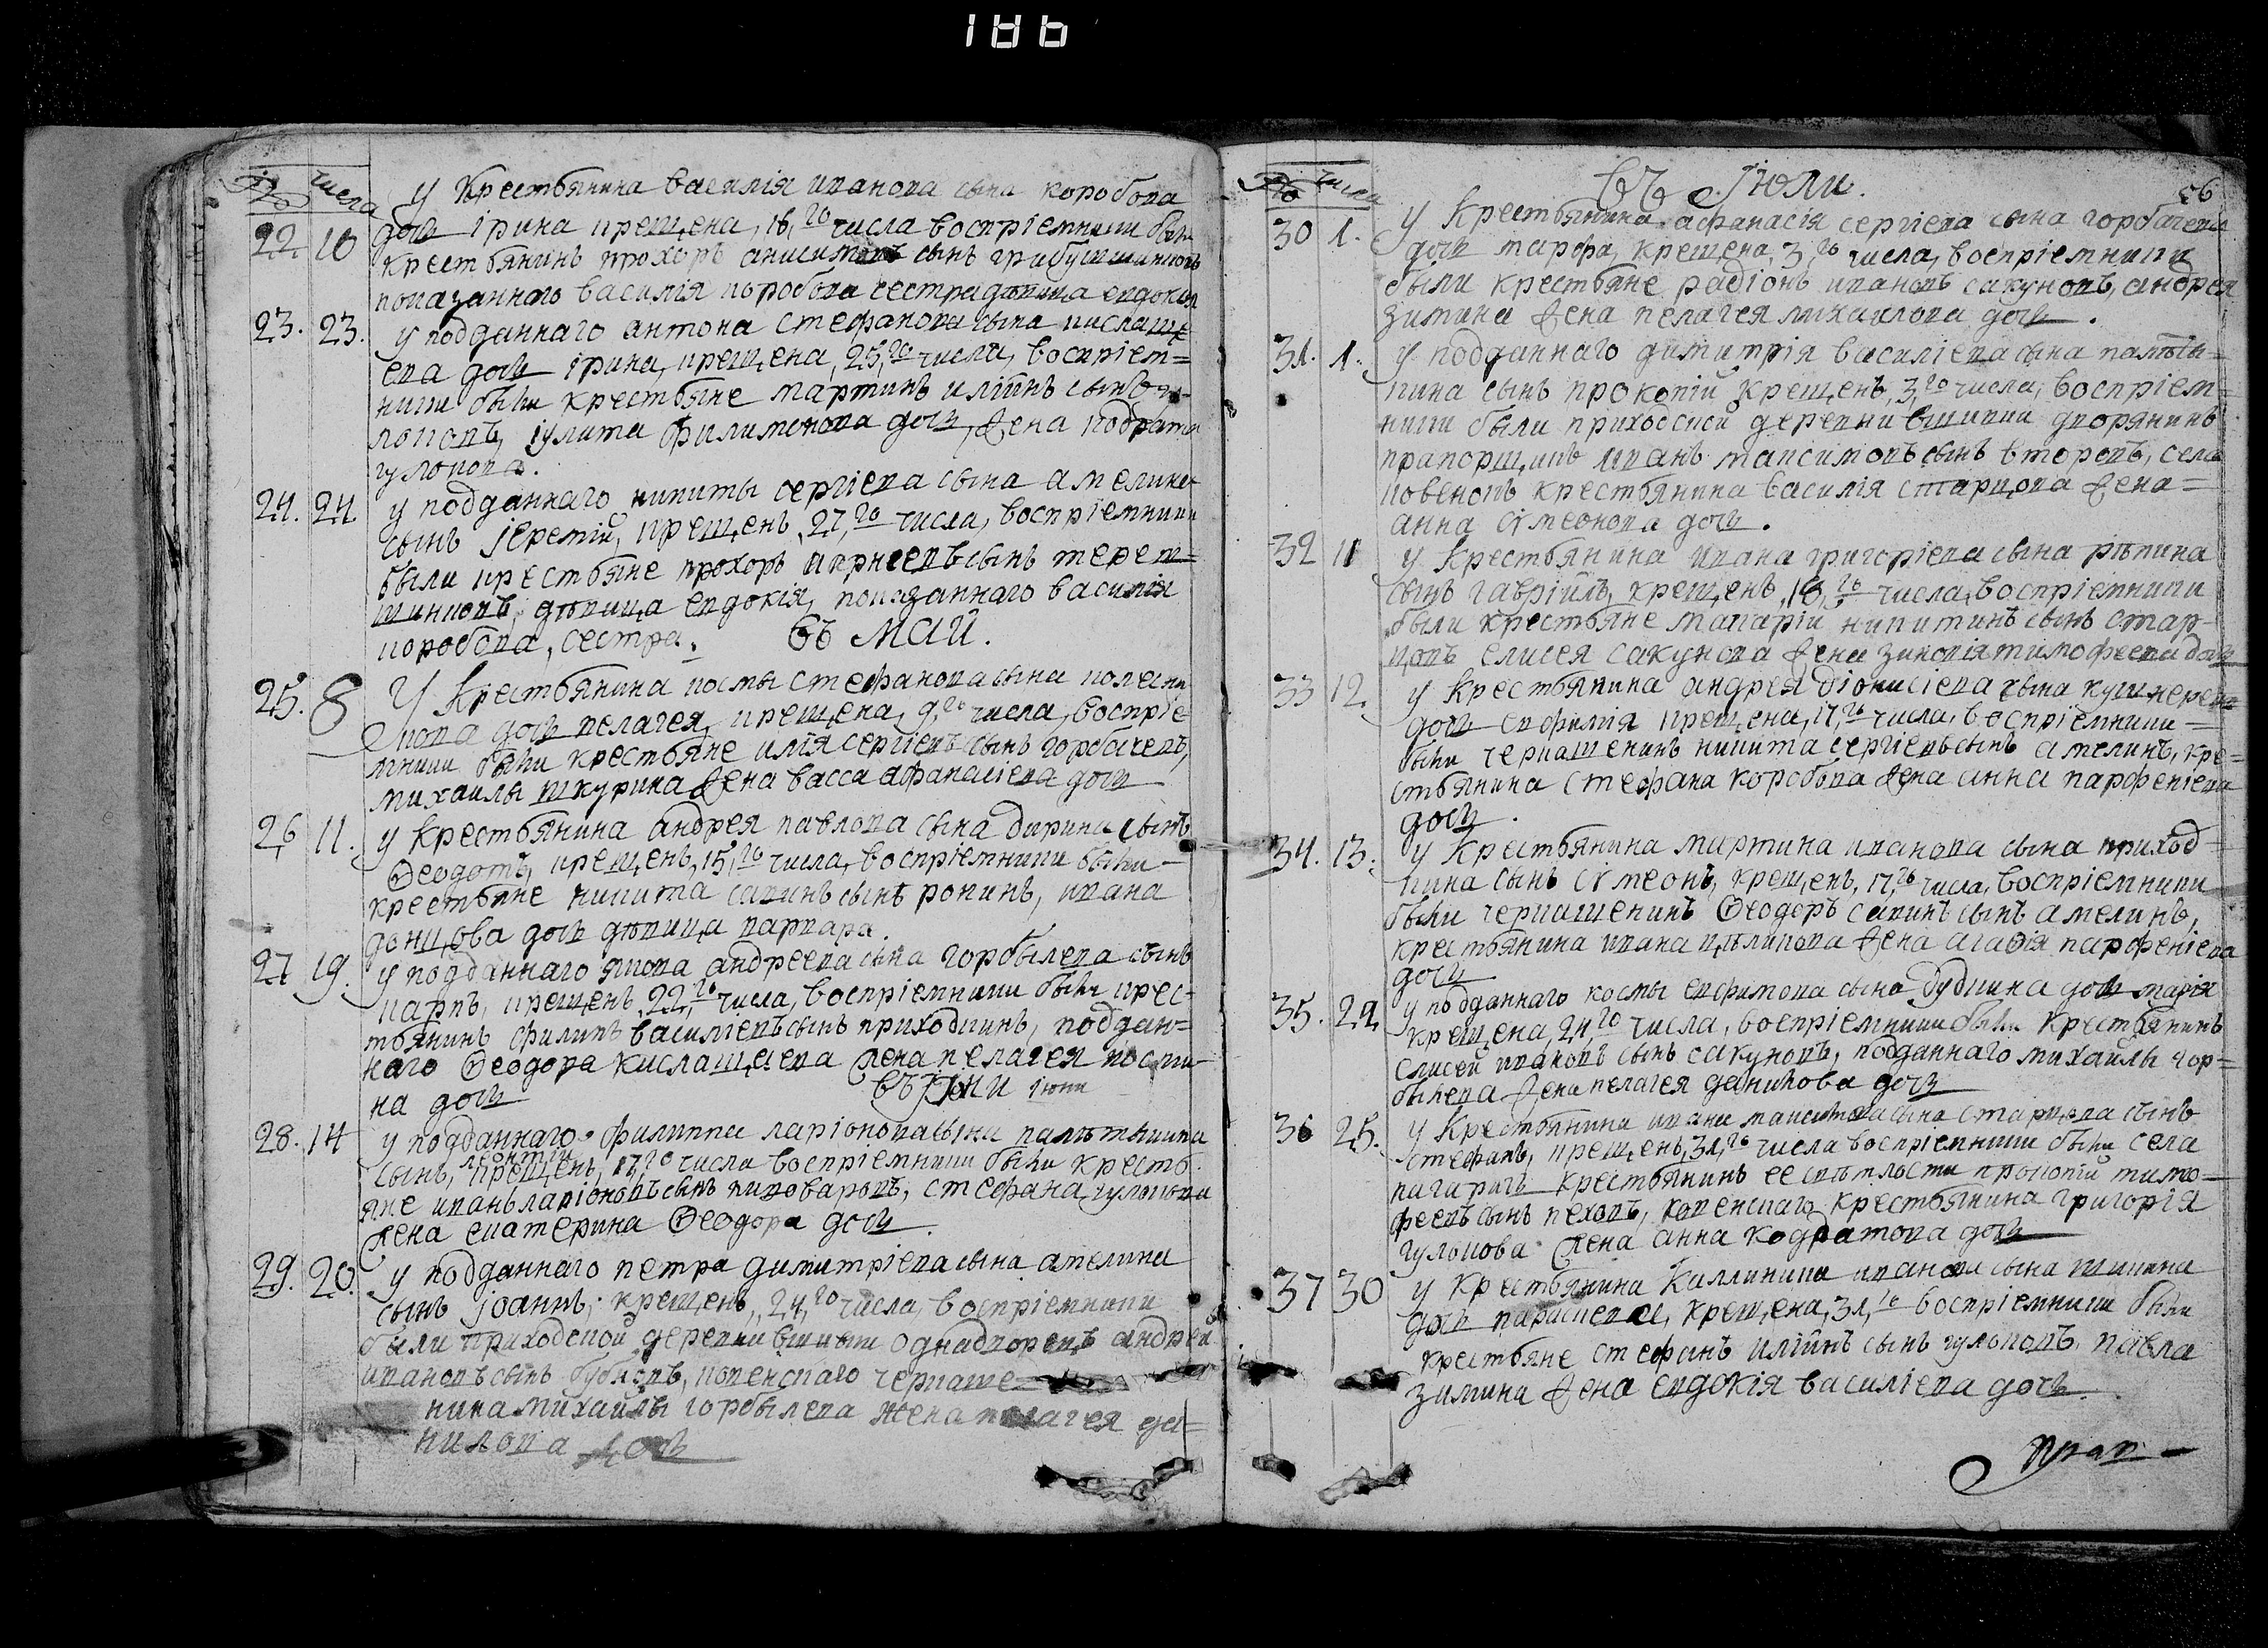 186
№ числа
У крестьянина василія иванова сына коробова
22 10 дочь ірина крещена, 16,го числа воспріемники были
крестьянинъ прохоръ анисимовъ сынъ
показаннаго василія коробова сестра дѣвица евдокія
23. 23. у подданнаго антона стефанова сына кислаще
ева дочь ірина, крещена, 25,го числа, воспріем=
ники были крестьяне мартинъ иліинъ сынъ гу-
лоповъ, іулита филимонова дочь, жена кодрата
гулопова.
24. 24. у подданнаго никиты сергіева сына амелина
сынъ іеремій, крещенъ, 27,го числа, воспріемники
были крестьяне прохоръ сынъ тереш=
шинковъ, дѣвица евдокія, показаннаго василія
коробова, сестра. въ маи.
25. 8 У крестьянина космы стефанова сына колесни
кова дочь пелагея, крещена, 9,го числа, воспріе
мники были крестьяне илія сергіевъ сынъ горбачевъ,
михаилы шкурина жена васса афанасіева дочь
26 11. у крестьянина андрея павлова сына дирина сынъ
Ѳеодотъ, крещенъ, 15,го числа, воспріемники были
крестьяне никита савинъ сынъ ронинъ, ивана
донцова дочь дѣвица варвара.
27 19. у подданнаго якова андреева сына горбылева сынъ
карпъ, крещенъ, 22,го числа, воспріемники были крес-
тьянинъ филипъ василіевъ сынъ приходкинъ, поддан=
наго Ѳеодора кислащеева жена пелагея косми-
на дочь въ іюни
28. 14 у подданнаго филиппа ларіонова сына
леонтій
сынъ, крещенъ, 17,го числа воспріемники были кресть
яне иванъ ларіоновъ сынъ пивоваровъ, стефана гулопова
жена екатерина Ѳеодора дочь.
29. 20. у подданнаго петра димитріева сына амелина
сынъ іоаннъ, крещенъ, 24,го числа, воспріемники
были приходской деревни вшивки однадворецъ андрей
ивановъ сынъ бубновъ, ковенскаго черкаше
нина михаилы горбылева жена пелагея да=
нилова дочь
въ Іюли. 56
№ числа
30 1. У крестьянина афанасія сергіева сына горбачева
дочь марфа, крещена, 3,го числа, воспріемники
были крестьяне радіонъ ивановъ сакуновъ, андрея
зимина жена пелагея михаилова дочь.
31. 1. у подданнаго димитрія василіева сына
кина сынъ прокопій крещенъ, 3,го числа, воспріем=
ники были приходской деревни вшивки дворянинъ
прапорщикъ иванъ максимовъ сынъ второвъ, села
ковенокъ крестьянина василія старцова жена=
анна сѵмеонова дочь.
32 11 у крестьянина ивана григоріева сына рѣпина
сынъ гавріилъ, крещенъ, 16,го числа, воспріемники
были крестьяне макарій никитинъ сынъ стар-
цовъ елисея сакунова жена зиновія тимофеева дочь
33 12. у крестьянина андрея діонисіева сына кушнерева
дочь евфимія крещена, 17,го числа, воспріемники=
были черкашенинъ никита сергіевъ сынъ амелинъ, кре=
стьянина стефана коробова жена анна парфеніева
дочь.
34. 13. у крестьянина мартина иванова сына приход=
кина сынъ сѵмеонъ, крещенъ, 17,го числа, воспріемники
были черкашенинъ Ѳеодоръ савинъ сынъ амелинъ,
крестьянина ивана жена агафія парфеніева
дочь
35. 22. у подданнаго космы евфимова сына дудкина дочь марія
крещена, 24,го числа, воспріемники были крестьянинъ
елисей ивановъ сынъ сакуновъ, подданнаго михаилы гор=
былева жена пелагея данилова дочь
36 25. у крестьянина ивана максимова сына старцова сынъ
стефанъ, крещенъ, 31,го числа воспріемники были села
крестьянинъ ее свѣтлости прокопій тимо=
феевъ сынъ пеховъ, ковенскаго крестьянина григорія
гулопова жена анна кодратова дочь
37 30 у крестьянина каллиника иванова сына шикина
дочь параскева, крещена, 31,го воспріемники были
крестьяне стефанъ иліинъ сынъ гулоповъ, павла
зимина жена евдокія василіева дочь.